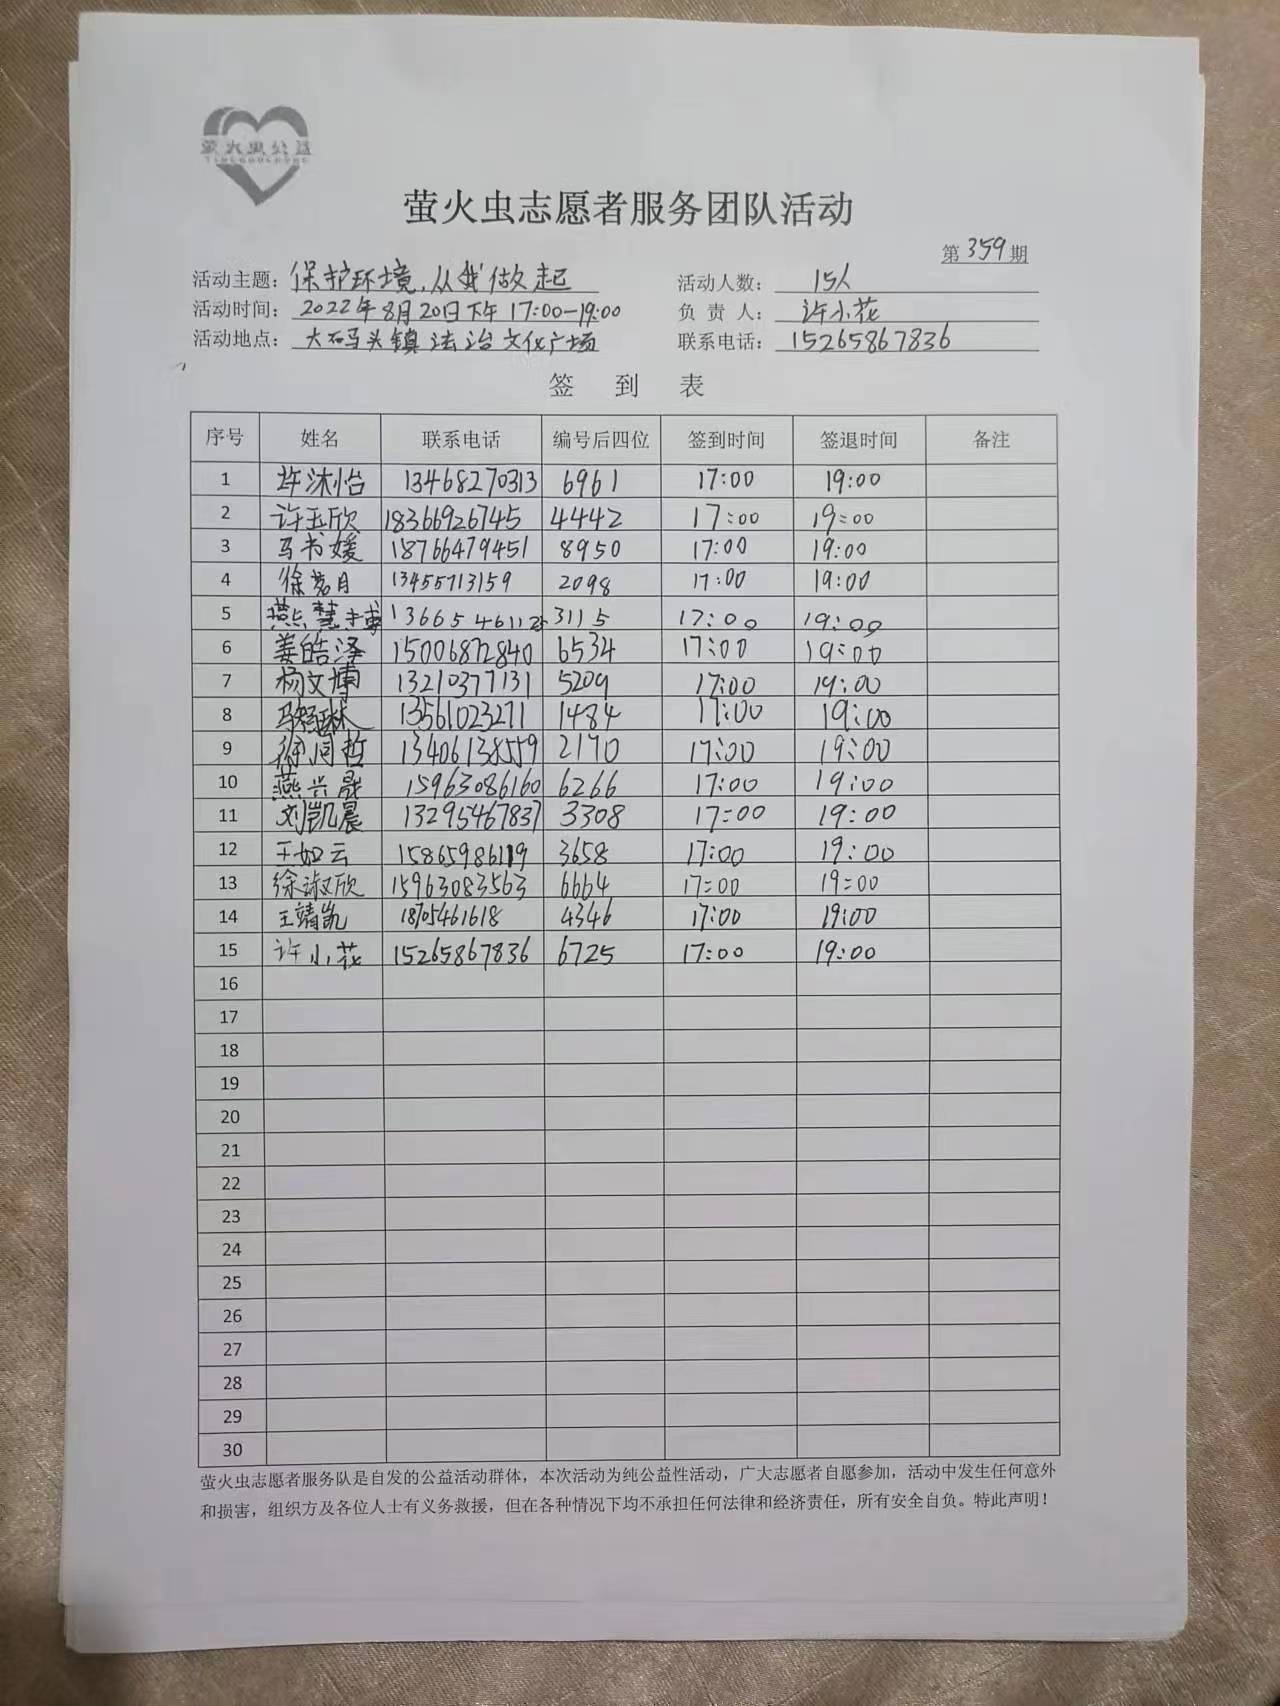 萤火虫公益
萤火虫志愿者服务团队活动
第359期
活动主题：保护环境，从我做起 活动人数：15人
活动时间：2022年8月20日下午17:00-19:00 负责人：许小花
活动地点：大石马头镇法治文化广场 联系电话：15265867836
签到表
序号 姓名 联系电话 编号后四位 签到时间 签退时间 备注
1 许沐怡 13468270313 6961 17:00 19:00
2 许玉欣 18366926745 4442 17:00 19:00
3 马书媛 18766479451 8950 17:00 19:00
4 徐茗月 13455713159 2098 17:00 19:00
5 燕慧博 3115 17:00 19:00
6 姜皓泽 15006872840 6534 17:00 19:00
7 杨文博 13210377131 5209 17:00 19:00
8 13561023271 1484 17:00 19:00
9 徐同哲 13406138559 2170 17:00 19:00
10 燕兴晟 15963086160 6266 17:00 19:00
11 刘凯晨 13295467837 3308 17:00 19:00
12 王如云 15865986119 3658 17:00 19:00
13 徐淑欣 15963083563 6664 17:00 19:00
14 王靖凯 18705461618 4346 17:00 19:00
15 许小花 15265867836 6725 17:00 19:00
16
17
18
19
20
21
22
23
24
25
26
27
28
29
30
萤火虫志愿者服务队是自发的公益活动群体，本次活动为纯公益性活动，广大志愿者自愿参加，活动中发生任何意外
和损害，组织方及各位人士有义务救援，但在各种情况下均不承担任何法律和经济责任，所有安全自负。特此声明！